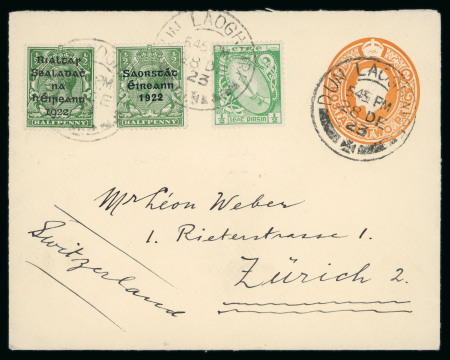 Rialtas
Sealadac
na
hÉireann
1922
HALFPENNY
Saorstát
Éireann
1922
HALFPENNY
DUN LAOGH
5 45 PM
28 DE
23
DUN LAOGH
5 45 PM
28 DE
23
TWO PENCE
Mr Léon Weber
1. Rieterstrasse 1.
Zürich 2.
Switzerland